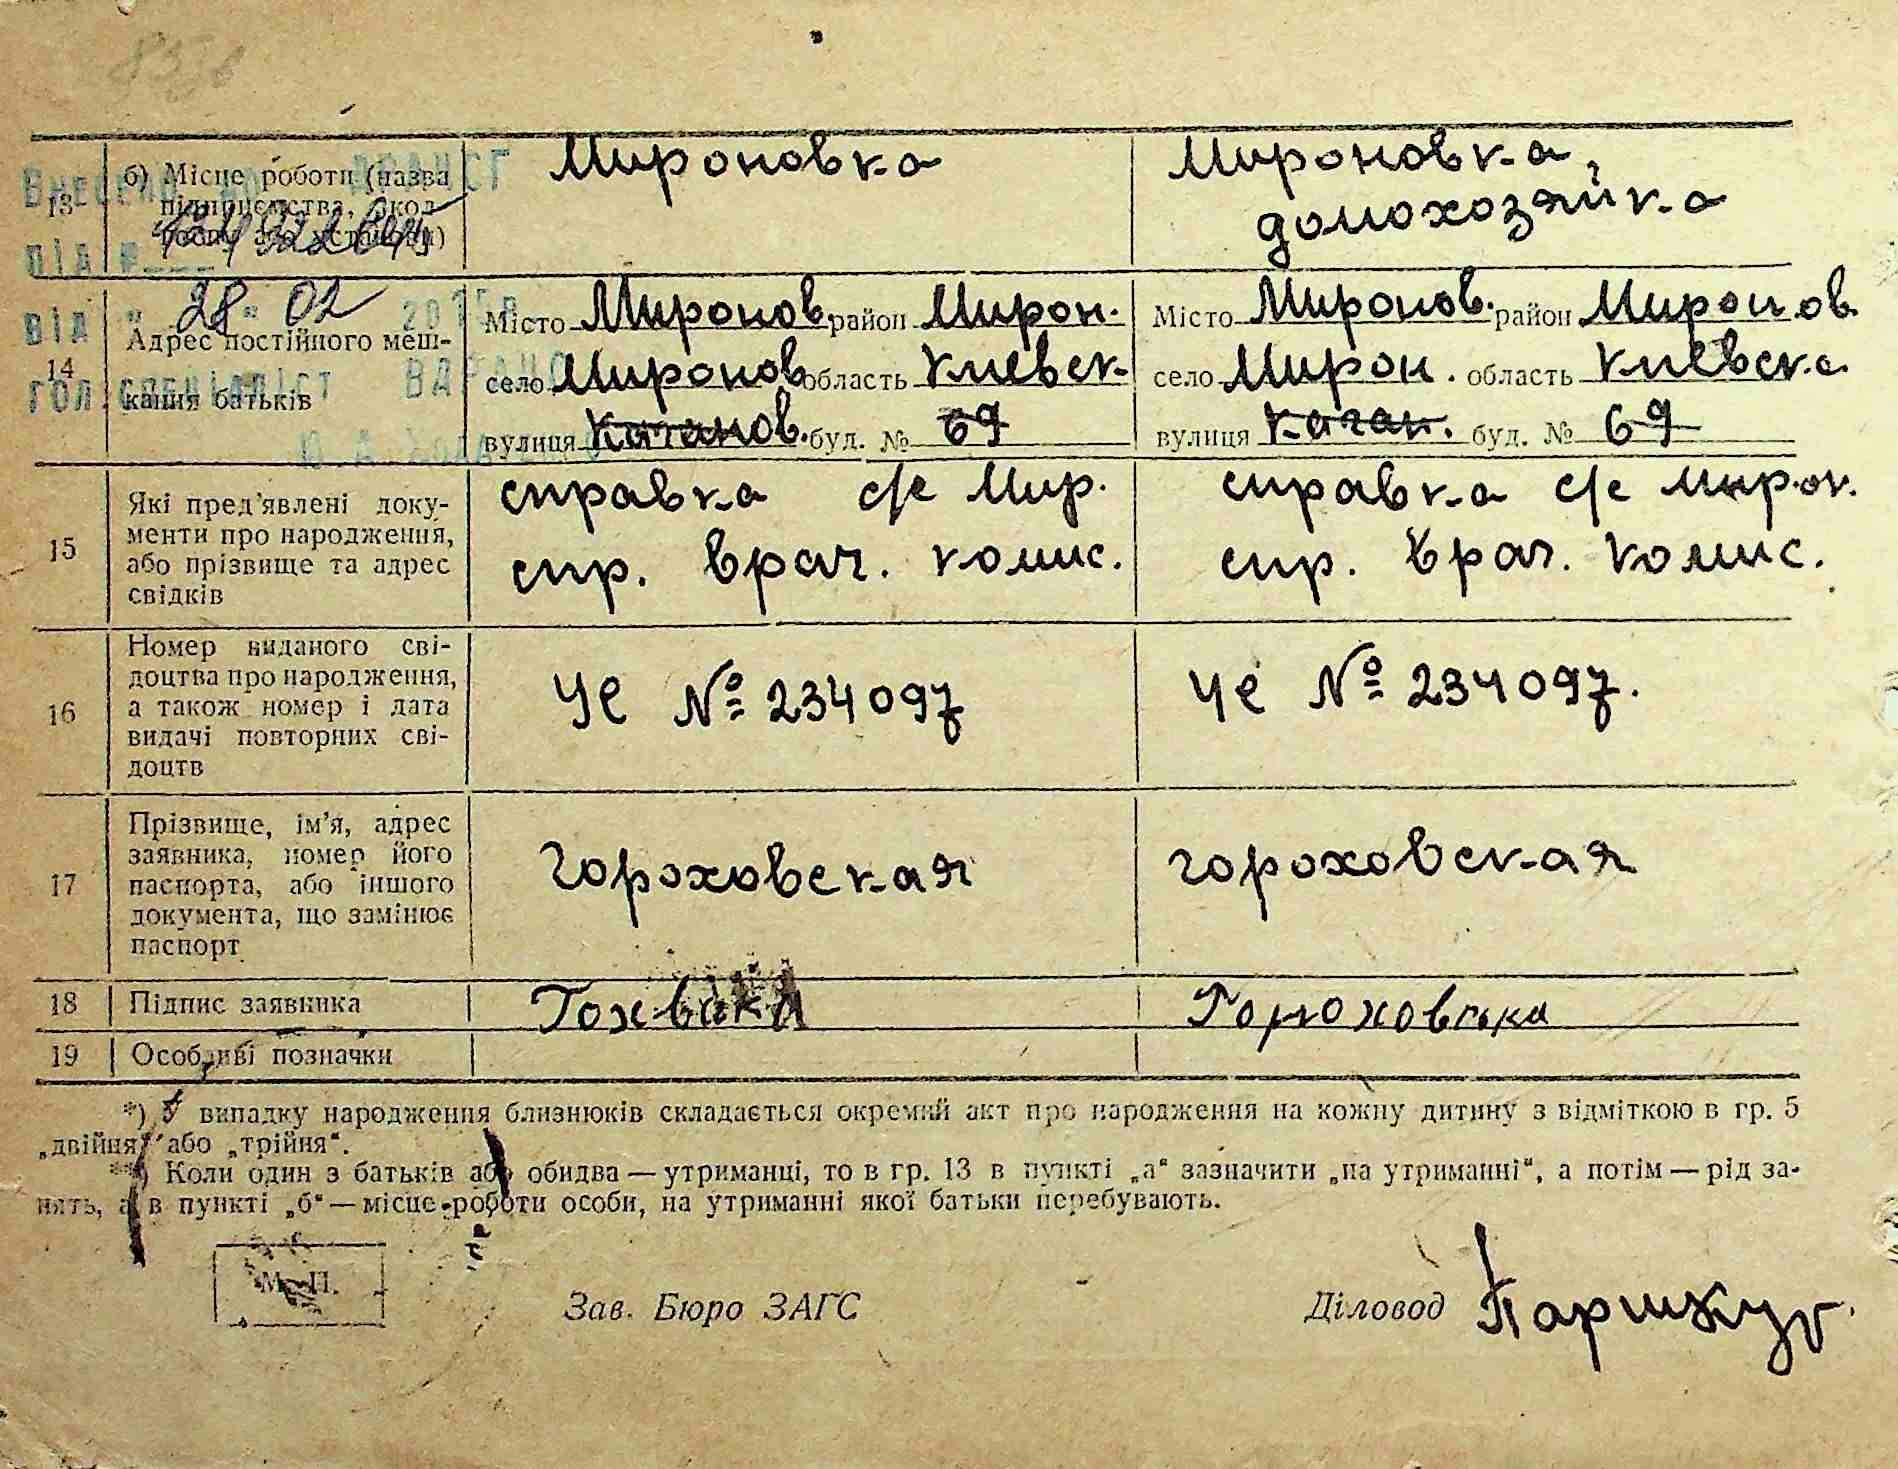 13
б) Місце роботи (назва
підприємства,
Мироновка
Мироновка,
домохозяйка
28 02
14
Адрес постійного меш-
кання батьків
гол. спеціаліст
Місто Миронов. район Мирон.
село Миронов область Киевск.
вулиця буд. № 69
Місто Миронов. район Миронов.
село Мирон. область Киевска
вулиця Каган. буд. № 69
15
Які пред'явлені доку-
менти про народження,
або прізвище та адрес
свідків
справка с/с Мир.
спр. врач. комис.
справка с/с Мирон.
спр. врач. комис.
16
Номер виданого сві-
доцтва про народження,
а також номер і дата
видачі повторних сві-
доцтв
УС № 234097
УС № 234097.
17
Прізвище, ім'я, адрес
заявника, номер його
паспорта, або іншого
документа, що замінює
паспорт
Гороховская
Гороховская
18
Підпис заявника
Гороховська
19
Особливі позначки
*) У випадку народження близнюків складається окремий акт про народження на кожну дитину з відміткою в гр. 5
„двійня" або „трійня".
**) Коли один з батьків або обидва — утриманці, то в гр. 13 в пункті „а" зазначити „на утриманні", а потім — рід за-
нять, а в пункті „б" — місце роботи особи, на утриманні якої батьки перебувають.
М. П.
Зав. Бюро ЗАГС
Діловод